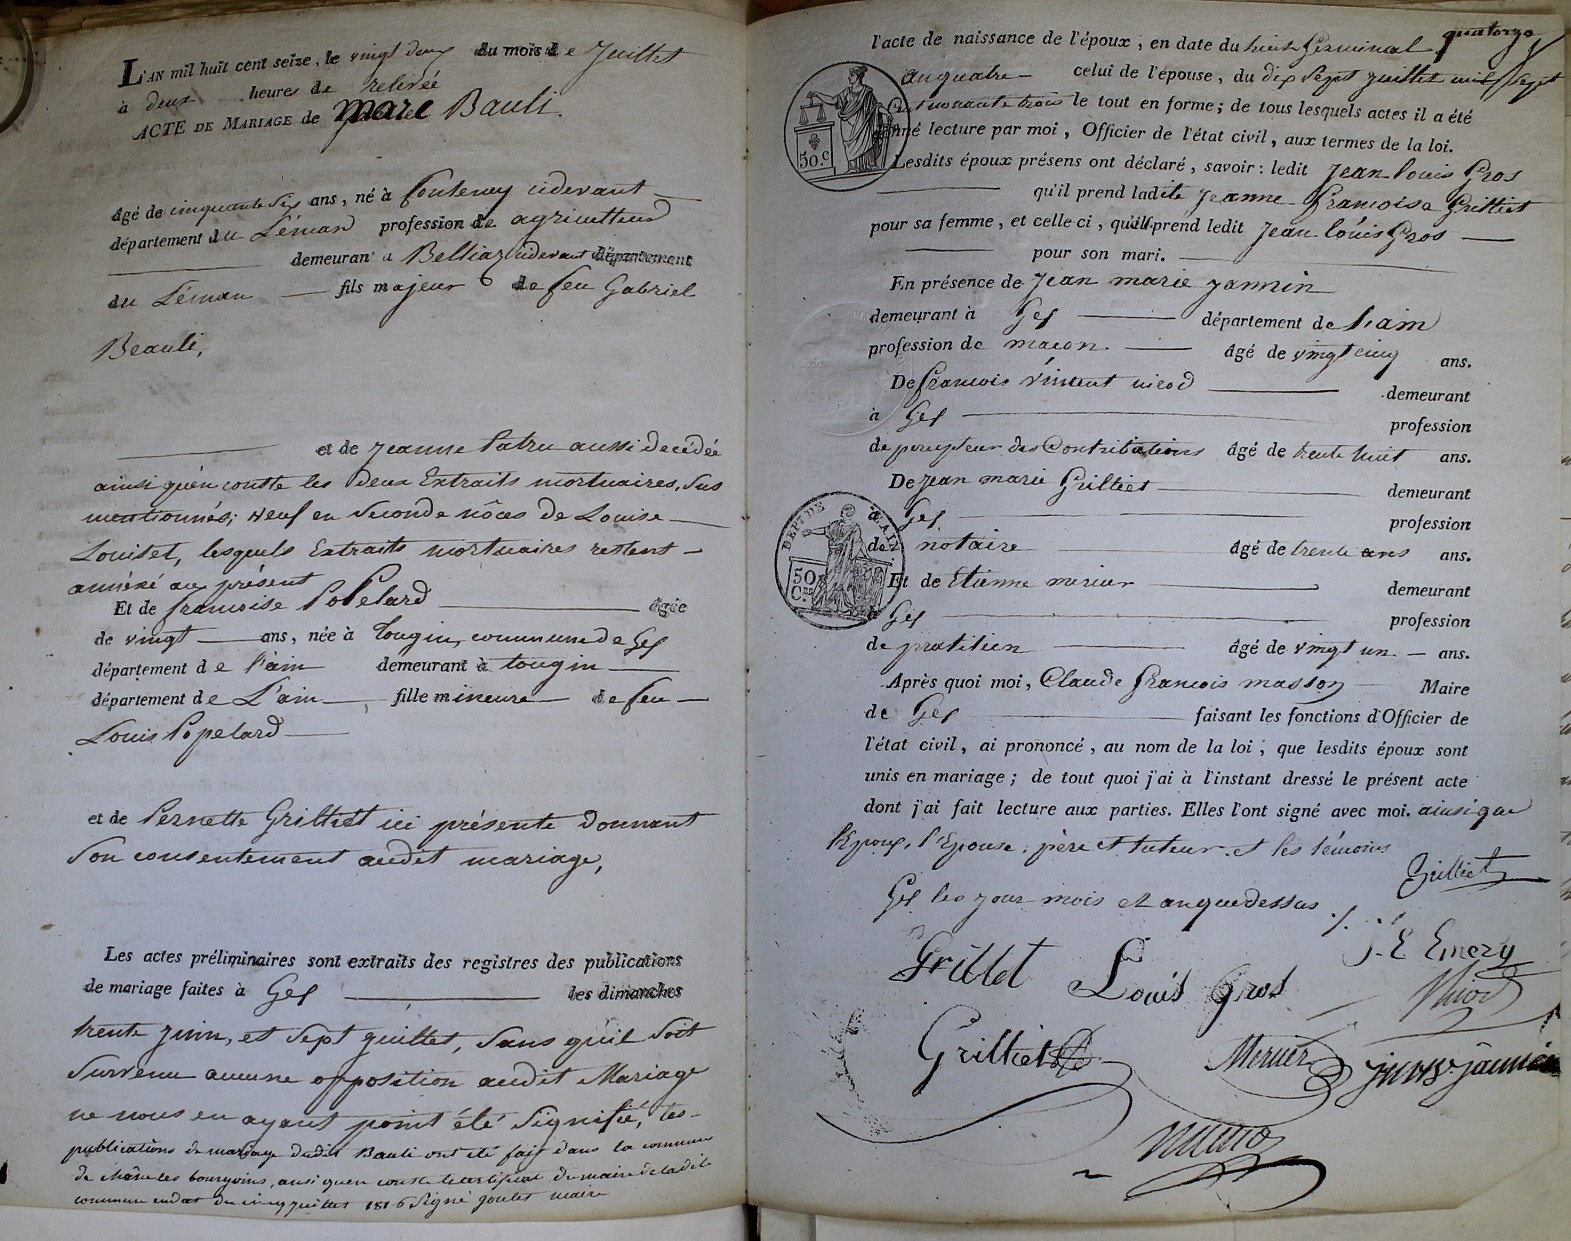 L'AN mil huit cent seize, le vingt deux du mois de Juillet
à deux heures de relevée
ACTE DE MARIAGE de marc Bauli.
âgé de cinquante six ans, né à fonteney cidevant
département du Léman profession de agriculteur
demeurant à Bellias cidevant département
du Léman fils majeur de feu Gabriel
Beauli,
et de Jeanne Patru aussi décédée
ainsi qu'en conste les deux Extraits mortuaires, sus
mentionnés; veuf en seconde nôces de Louise
Louiset, lesquels Extraits mortuaires restent
annéxé au présent
Et de francoise PoPelard âgée
de vingt ans, née à tougin, commune de Gex
département de l'ain demeurant à tougin
département de L'ain fille mineure de feu
Louis Popelard
et de Pernette Grilliet ici présente donnant
son consentement audit mariage,
Les actes préliminaires sont extraits des registres des publications
de mariage faites à Gex les dimanches
trente juin, et sept juillet, sans qu'il soit
survenu aucune opposition audit Mariage
ne nous en ayant point été signifié, les
publications de mariage dudit Bauli ont été fait dans la commune
de bourgoins, ainsi quen conste le certificat du maire de ladite
commune en dat du cinq juillet 1816 signé goulet maire
l'acte de naissance de l'époux, en date du huit Germinal quatorze
an quatre celui de l'épouse, du dix sept juillet mil sept
cent nonante trois le tout en forme; de tous lesquels actes il a été
donné lecture par moi, Officier de l'état civil, aux termes de la loi.
50.c
Lesdits époux présens ont déclaré, savoir: ledit Jean louis Gros
qu'il prend ladite Jeanne françoise Grilliet
pour sa femme, et celle-ci, qu'elle prend ledit Jean louis Gros
pour son mari.
En présence de Jean marie jannin
demeurant à Gex département de l'ain
profession de macon. âgé de vingt cinq ans.
De francois vincent nicod demeurant
à Gex profession
de percepteur des Contributions âgé de trente huit ans.
De Jean marie Grilliet demeurant
à Gex profession
DEPT DE L'AIN
50 C.es
de notaire âgé de trente ans ans.
Et de Etienne mercier demeurant
à Gex profession
de pratitien âgé de vingt un ans.
Après quoi moi, Claude francois masson Maire
de Gex faisant les fonctions d'Officier de
l'état civil, ai prononcé, au nom de la loi, que lesdits époux sont
unis en mariage; de tout quoi j'ai à l'instant dressé le présent acte
dont j'ai fait lecture aux parties. Elles l'ont signé avec moi. ainsi que
l'Epoux, l'Epouse, père et tuteur et les témoins
Grilliet
Gex les jour mois et an que dessus
J. E Emery
Grillet Louis Gros Nicod
Grilliet Mercier jannin